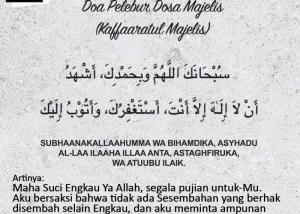 Doa Pelebur Dosa Majelis
(Kaffaaratul Majelis)
سُبْحَانَكَ اللَّهُمَّ وَبِحَمْدِكَ، أَشْهَدُ
أَنْ لَا إِلَهَ إِلَّا أَنْتَ، أَسْتَغْفِرُكَ، وَأَتُوْبُ إِلَيْكَ
SUBHAANAKALLAAHUMMA WA BIHAMDIKA, ASYHADU
AL-LAA ILAAHA ILLAA ANTA, ASTAGHFIRUKA,
WA ATUUBU ILAIK.
Artinya:
Maha Suci Engkau Ya Allah, segala pujian untuk-Mu.
Aku bersaksi bahwa tidak ada Sesembahan yang berhak
disembah selain Engkau, dan aku meminta ampunan